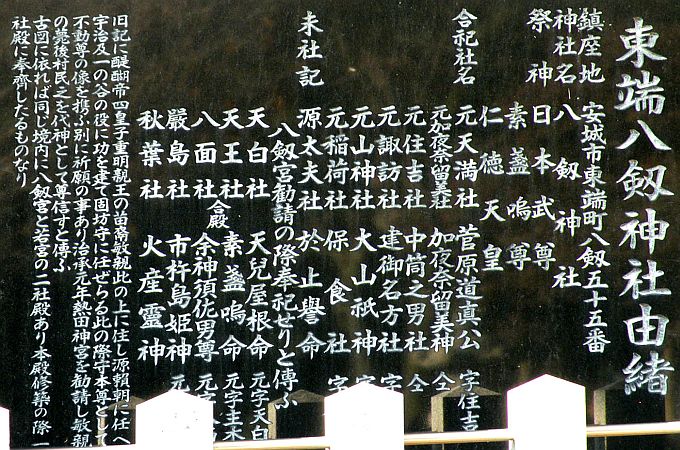 東端八剱神社由緒
鎮座地 安城市東端町八剱五十五番
神社名 八剱神社
祭神 日本武尊
素盞嗚尊
仁徳天皇
合祀社名 元天満社 菅原道真公 字住吉
元加夜奈留美社 加夜奈留美神 仝
元住吉社 中筒之男社 仝
元諏訪社 建御名方社 字
元山神社 大山祇神 字
元稲荷社 保食社 字
末社記 源太夫社 於止譽命
八剱宮勧請の際奉祀せりと傳ふ
天白社 天兒屋根命 元字天白
天王社 合殿 素盞嗚命 元字圭木
八面社 余神須佐男尊 元字
厳島社 市杵島姫神 元
秋葉社 火産霊神
旧記に醍醐帝四皇子重明親王の苗裔敏親此の上に住し源頼朝に任へ
宇治及一の谷の役に功を建て固坊守に任ぜらる此の際守本尊として
不動尊の像を携ふ別に祈願の事あり治承元年熱田神宮を勧請し敏親
の薨後村民之を代神として尊信すと傳ふ
古図に依れば同じ境内に八剱宮と若宮の二社殿あり本殿修築の際一
社殿に奉齊したるものなり